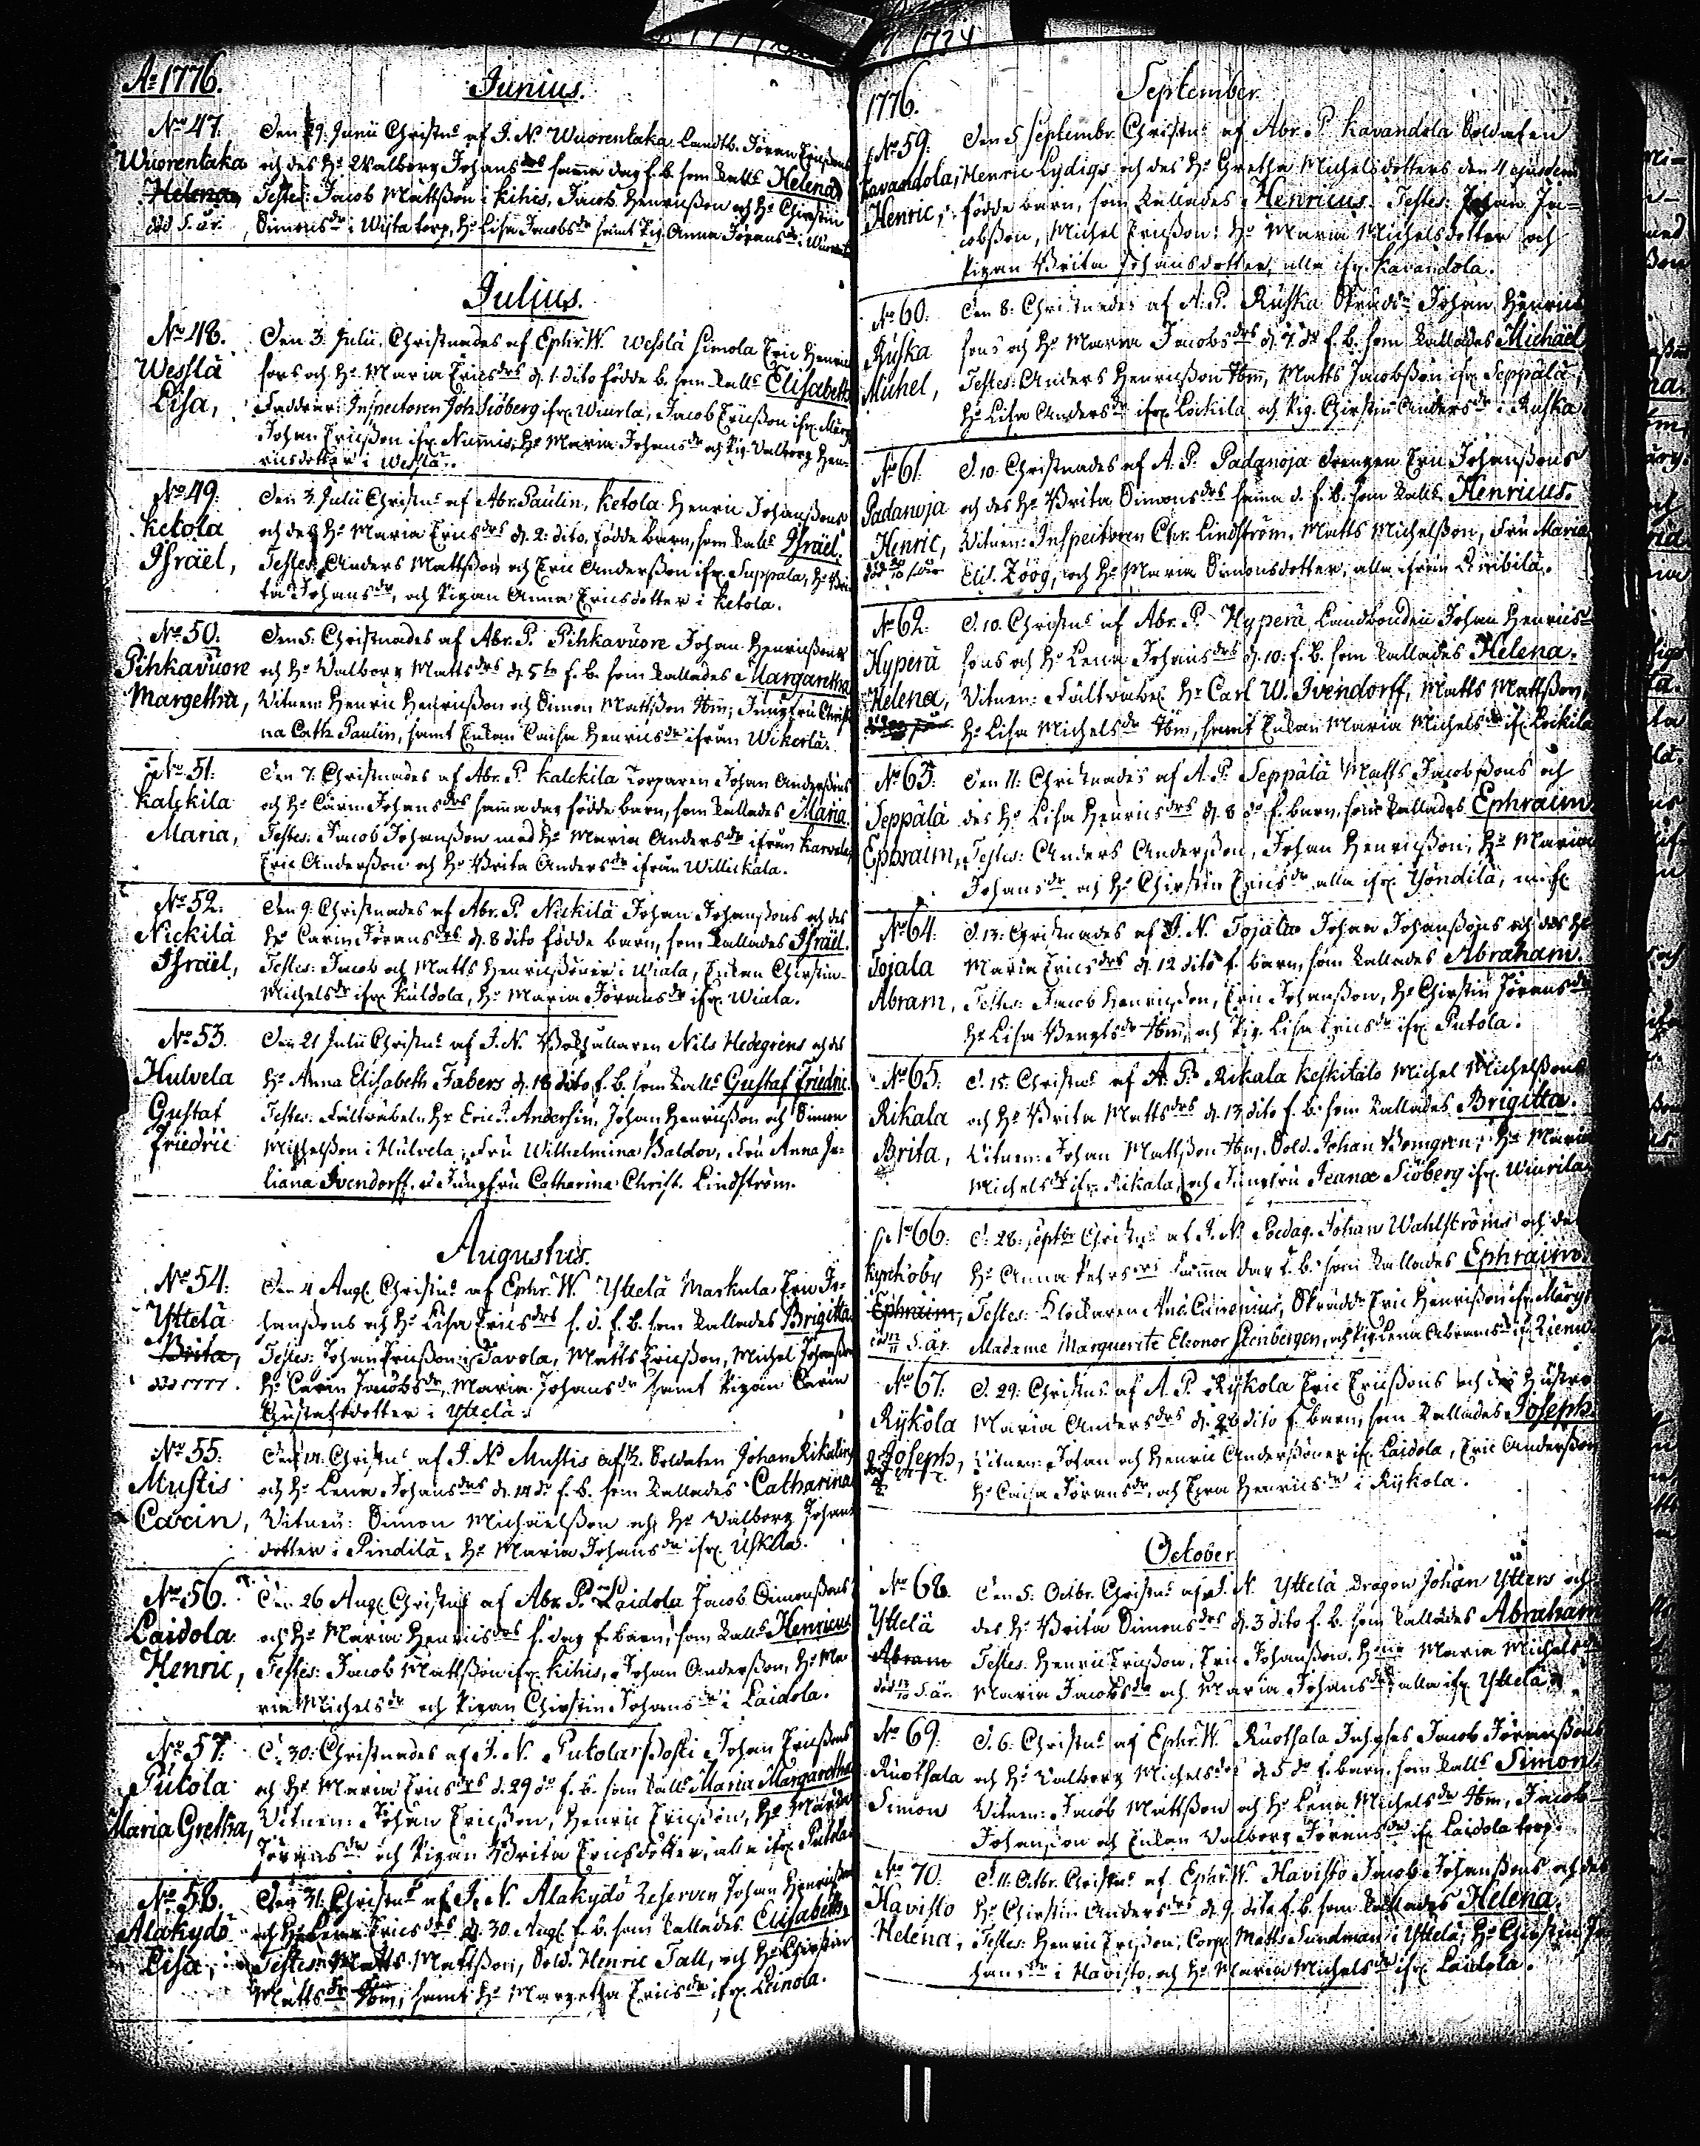 Ao 1776. Junius.
No 47. Den 29. Junii Christns af J. N. Wuorentaka Landtb. Jöran Ericssons
Wuorentaka och des Ho Walborg Johansdrs samma dag f. b. som Kalls Helena
Helena, Testes: Jacob Mattsson i Kihis, Jacob Henricsson och Ho Chirstin
död s. år. Simonsdr i Wista torp, Ho Lisa Jacobsdr samt Pig. Anna Jöransdr i
Julius.
No 48. Den 3. Julii. Christnades af Ephr. W. Wesslä Simola Eric Henrics
Wesslä sons och Ho Maria Ericsdrs d. 1. dito födde b. som Kalls Elisabeth
Lisa, Faddrar: Inspectoren Joh. Siöberg ifr. Wiurla, Jacob Ericsson ifr.
Johan Ericsson ifr. Numis, Ho Maria Johansdr och Pig. Valborg Hen-
ricsdotter i Wesslä.
No 49. Den 3. Julii Christns af Abr. Paulin, Ketola Henric Johanssons
Ketola och des Ho Maria Ericsdrs d. 2. dito, födde barn, som Kalls Israël
Israël, Testes: Anders Mattsson och Eric Andersson ifr. Suppala, Ho Bri-
ta Johansdr, och Pigan Anna Ericsdotter i Ketola.
No 50. Den 5. Christnades af Abr. P. Pihkavuore Johan Henricssons
Pihkavuore och Ho Valborg Mattsdrs d. 5to f. b. som Kallades Margaretha
Margetha, Vitnen Henric Henricsson och Simon Mattsson Ibm, Jungfru Christi
na Cath. Paulin, samt Enkan Caisa Henricsdr ifrån Wikerlä.
No 51. Den 7. Christnades af Abr. P. Kalckila Torparen Johan Anderssons
Kalckila och Ho Carin Johansdrs samma dag födde barn, som Kallades Maria
Maria, Testes: Jacob Johansson med Ho Maria Andersdr ifrån Karvela,
Eric Andersson och Ho Brita Andersdr ifrån Willickala.
No 52. Den 9. Christnades af Abr. P. Nickilä Johan Johanssons och des
Nickilä Ho Carin Jöransdrs d. 8 dito födde barn, som Kallades Israël.
Israël, Testes: Jacob och Matts Henricssöner i Wiala, Enkan Chirstin
Michelsdr ifr. Kuldola, Ho Maria Jöransdr ifr. Wiala.
No 53. Den 21 Julii Christns af J. N. Bokhallaren Nils Hedegrens och des
Hulvela Ho Anna Elisabeth Fabers d. 18 dito f. b. som Kalls Gustaf Friedric
Gustaf Testes: Fältväbel. Hr Eric Andersin, Johan Henricsson och Simon
Friedric Michelsson i Hulvela, Fru Wilhelmina Baldov, Fru Anna Ju-
liana Ivendorff, Jungfru Catharina Christ. Lindström.
Augustus.
No 54. Den 4 Aug. Christns af Ephr. W. Yttelä Markula Eric Jo-
Yttelä hanssons och Ho Lisa Ericsdrs s. d. f. b. som Kallades Brigitta
Brita, Testes: Johan Ericsson i Tavola, Matts Ericsson, Michel Johansson
död 1777. Ho Carin Jacobsdr, Maria Johansdr samt Pigan Carin
Gustafsdotter i Yttelä.
No 55. Den 14. Christns af J. N. Mustis Soldaten Johan Rikalins
Mustis och Ho Lena Johansdrs d. 14 do f. b. som Kallades Catharina
Carin, Vitnen: Simon Michaëlsson och Ho Valborg Johans
dotter i Pindilä, Ho Maria Johansdr ifr. Uskila.
No 56. Den 26 Aug. Christns af Abr. P. Laidola Jacob Simonssons
Laidola och Ho Maria Henricsdrs s. dag f. barn, som Kalls Henricus
Henric, Testes: Jacob Mattsson ifr. Kihis, Johan Andersson, Ho Ma
ria Michelsdr och Pigan Chirstin Johansdr i Laidola.
No 57. D. 30. Christnades af J. N. Putola Johan Ericssons
Putola och Ho Maria Ericsdrs d. 29 do f. b. som Kalls Maria Margaretha
Maria Gretha, Vitnen: Johan Ericsson, Henric Ericsson, Ho Maria
Jöransdr och Pigan Brita Ericsdotter, alla ifr. Putola
No 58. Den 31. Christns af J. N. Alakydö Reserven Johan Henricssons
Alakydö och Ho Lena Ericsdrs d. 30. Aug. f. b. som Kallades Elisabeth,
Lisa, Testes: Matts Mattsson, Sold. Henric Tall, och Ho Chirstin
Mattsdr Ibm, samt Ho Margetha Ericsdr ifr. Leinola.
1776. September.
No 59. Den 5 Septembr. Christns af Abr. P. Kavandola Soldaten
Kavandola, Henric Lydigs och des Ho Gretha Michelsdotters den 4 ejusdem
Henric, födde barn, som Kallades Henricus. Testes: Johan Ja-
cobsson, Michel Ericsson, Ho Maria Michelsdotter och
Pigan Brita Johansdotter, alla ifr. Kavandola.
No 60. Den 8. Christnades af A. P. Ruska Skrädd. Johan Henrics
Ruska sons och Ho Maria Jacobsdrs d. 7. do f. b. som Kallades Michaël
Michel, Testes: Anders Henricsson Ibm, Matts Jacobsson ifr. Seppälä,
Ho Lisa Andersdr ifr. Lockila och Pig. Chirstin Andersdr i Ruska
No 61. D. 10. Christnades af A. P. Padanoja Drengen Eric Johanssons
Padanoja och des Ho Brita Simonsdrs samma d. f. b. som Kalls Henricus.
Henric, Vitnen: Inspectoren Chr. Lindström, Matts Michelsson, Fru Maria
Elis. Zöög, och Ho Maria Simonsdotter, alla ifrån
No 62. D. 10. Christns af Abr. P. Hyperä Landbonden Johan Henrics
Hyperä sons och Ho Lena Johansdrs d. 10. f. b. som Kallades Helena.
Helena, Vitnen: Fältväbel. Hr Carl W. Ivendorff, Matts Mattsson,
Ho Lisa Michelsdr Ibm, samt Enkan Maria Michelsdr if. Lockila
No 63. Den 11. Christnades af A. P. Seppälä Matts Jacobssons och
Seppälä des Ho Lisa Henricsdrs d. 8 do f. barn, som Kallades Ephraim.
Ephraim, Testes: Anders Andersson, Johan Henricsson, Ho Maria
Johansdr och Ho Chirstin Ericsdr alla ifr. Yöndilä,
No 64. D. 13. Christnades af J. N. Tojala Johan Johanssons och des Ho
Tojala Maria Ericsdrs d. 12 dito f. barn, som Kallades Abraham.
Abram, Testes: Jacob Henricsson, Eric Johansson, Ho Chirstin Jöransdr
Ho Lisa Bengtsdr Ibm, och Pig. Lisa Ericsdr ifr. Putola.
No 65. D. 15. Christns af A. P. Rikala Keskitalo Michel Michelssons
Rikala och Ho Brita Mattsdrs d. 13 dito f. b. som Kallades Brigitta.
Brita, Vitnen: Johan Mattsson Ibm, Sold. Johan Bomgren, Ho Maria
Michelsdr ifr. Rikala, och Jungfru Jeanæ Siöberg ifr. Wiurila
No 66. D. 28. Septbr Christns af J. N. Poedag. Johan Wahlströms och des
Kyrckoby Ho Anna Pehrsdrs samma dag f. b. som Kallades Ephraim.
Ephraim, Testes: Klockaren And. Canonius, Skrädd. Eric Henricsson ifr.
död s. år. Madame Marguerite Eleonor Steinbergen, och Pig. Lena Abramsdr
No 67. D. 29. Christns af A. P. Rykola Eric Ericssons och des Hustru
Ryköla Maria Andersdrs d. 28 dito f. barn, som Kallades Joseph.
Joseph, Vitnen: Johan och Henric Anderssöner if. Laidola, Eric Andersson
Ho Caisa Jöransdr, och Henricsdr i Rykola.
October
No 68. Den 5. Octbr. Christns af J. N. Yttelä Dragon Johan Ytters och
Yttelä des Ho Brita Simonsdrs d. 3 dito f. b. som Kallades Abraham
Abram Testes: Henric Ericsson, Eric Johansson, Maria Michelsdr
död 17/10 s. år Maria Jacobsdr och Maria Johansdr, alla ifr. Yttelä.
No 69. D. 6. Christns af Ephr. W. Ruotsala Inhyses Jacob Jöranssons
Ruotsala och Ho Valborg Michelsdrs d. 5 do f. barn, som Kalls Simon
Simon Vitnen: Jacob Mattsson och Ho Lena Michelsdr Ibm, Jacob
Johansson och Enkan Valborg Jöransdr if. Laidola torp.
No 70. D. 11. Octbr. Christns af Ephr. W. Havisto Jacob Johanssons och des
Havisto Ho Chirstin Andersdrs d. 9 dito f. b. som Kallades Helena.
Helena, Testes: Henric Ericsson, Corpr. Matts Sundman i Yttelä, Ho Chirstin Jo
hansdr i Havisto, och Ho Maria Michelsdr ifr. Laidola.